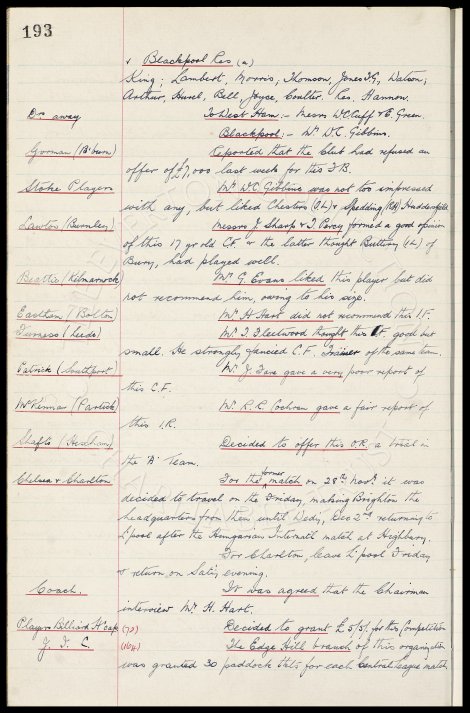 193
v Blackpool Res (a)
King; Lambert, Morris; Thomson, Jones T.G., Watson;
Arthur, Hurel, Bell, Joyce, Coulter. Res. Hannon.
Dr away To West Ham:- Messrs W.C. Cuff & E. Green.
Blackpool:- Mr W.C. Gibbins.
Gorman (B'burn) Reported that the Club had refused an
offer of £7,000 last week for this F.B.
Stoke Players Mr W.C. Gibbins was not too impressed
with any, but liked Chesters (O.L.) & Spedding (RB) Huddersfield
Lawton (Burnley) Messrs J. Sharp & T. Percy formed a good opinion
of this 17 yr old C.F. & the latter thought (I.L.) of
Bury, had played well.
Beattie (Kilmarnock) Mr G. Evans liked this player but did
not recommend him, owing to his size.
Eastham (Bolton) Mr H. Hart did not recommend this I.F.
Furness (Leeds) Mr T. Fleetwood thought this I.F. good but
small. He strongly fancied C.F. of the same team.
Patrick (Southport) Mr J. Tare gave a very poor report of
this C.F.
McKennan (Partick) Mr R.R. Cochran gave a fair report of
this I.R.
Shafts (Hexham) Decided to offer this O.R. a trial in
the 'A' Team.
Chelsea & Charlton For the former match on 28th Novr. it was
decided to travel on the Friday, making Brighton the
headquarters from then until Wedy, Dec 2nd returning to
L'pool after the Hungarian Internatl match at Highbury.
For Charlton, leave L'pool Friday
& return on Satdy evening.
Coach. It was agreed that the Chairman
interview Mr H. Hart.
Players Billiard H'cap (78) Decided to grant £5/5/- for this Competition
J. T. C. (164) The Edge Hill branch of this organisation
was granted 30 paddock tkts for each Central League match